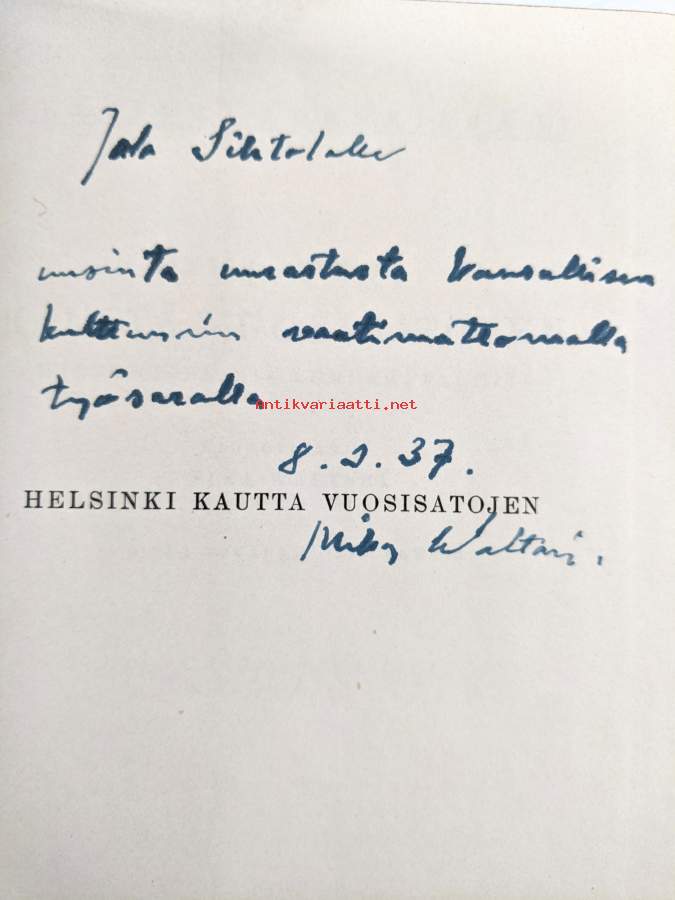 Jala Sihtolalle
uusinta urvastusta kansallisen
kulttuurin vaatimattomalla
työsaralla
antikvariaatti.net
8.2.37.
HELSINKI KAUTTA VUOSISATOJEN
Mika Waltari.